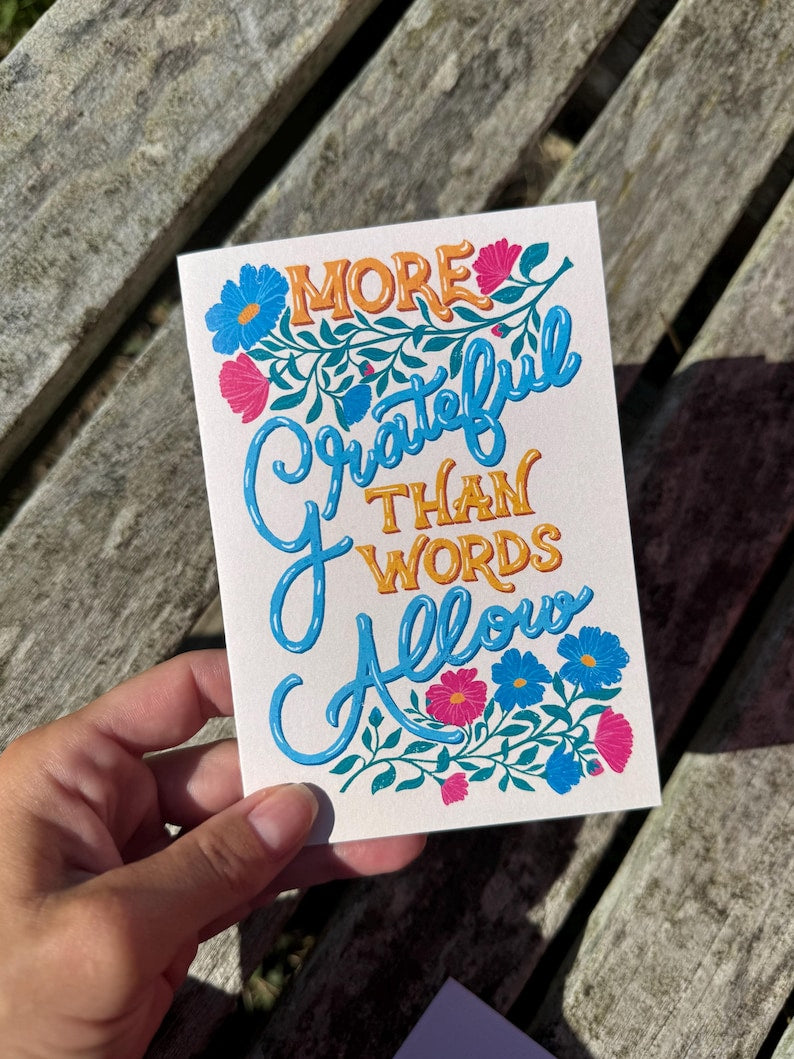 MORE
Grateful
THAN
WORDS
Allow